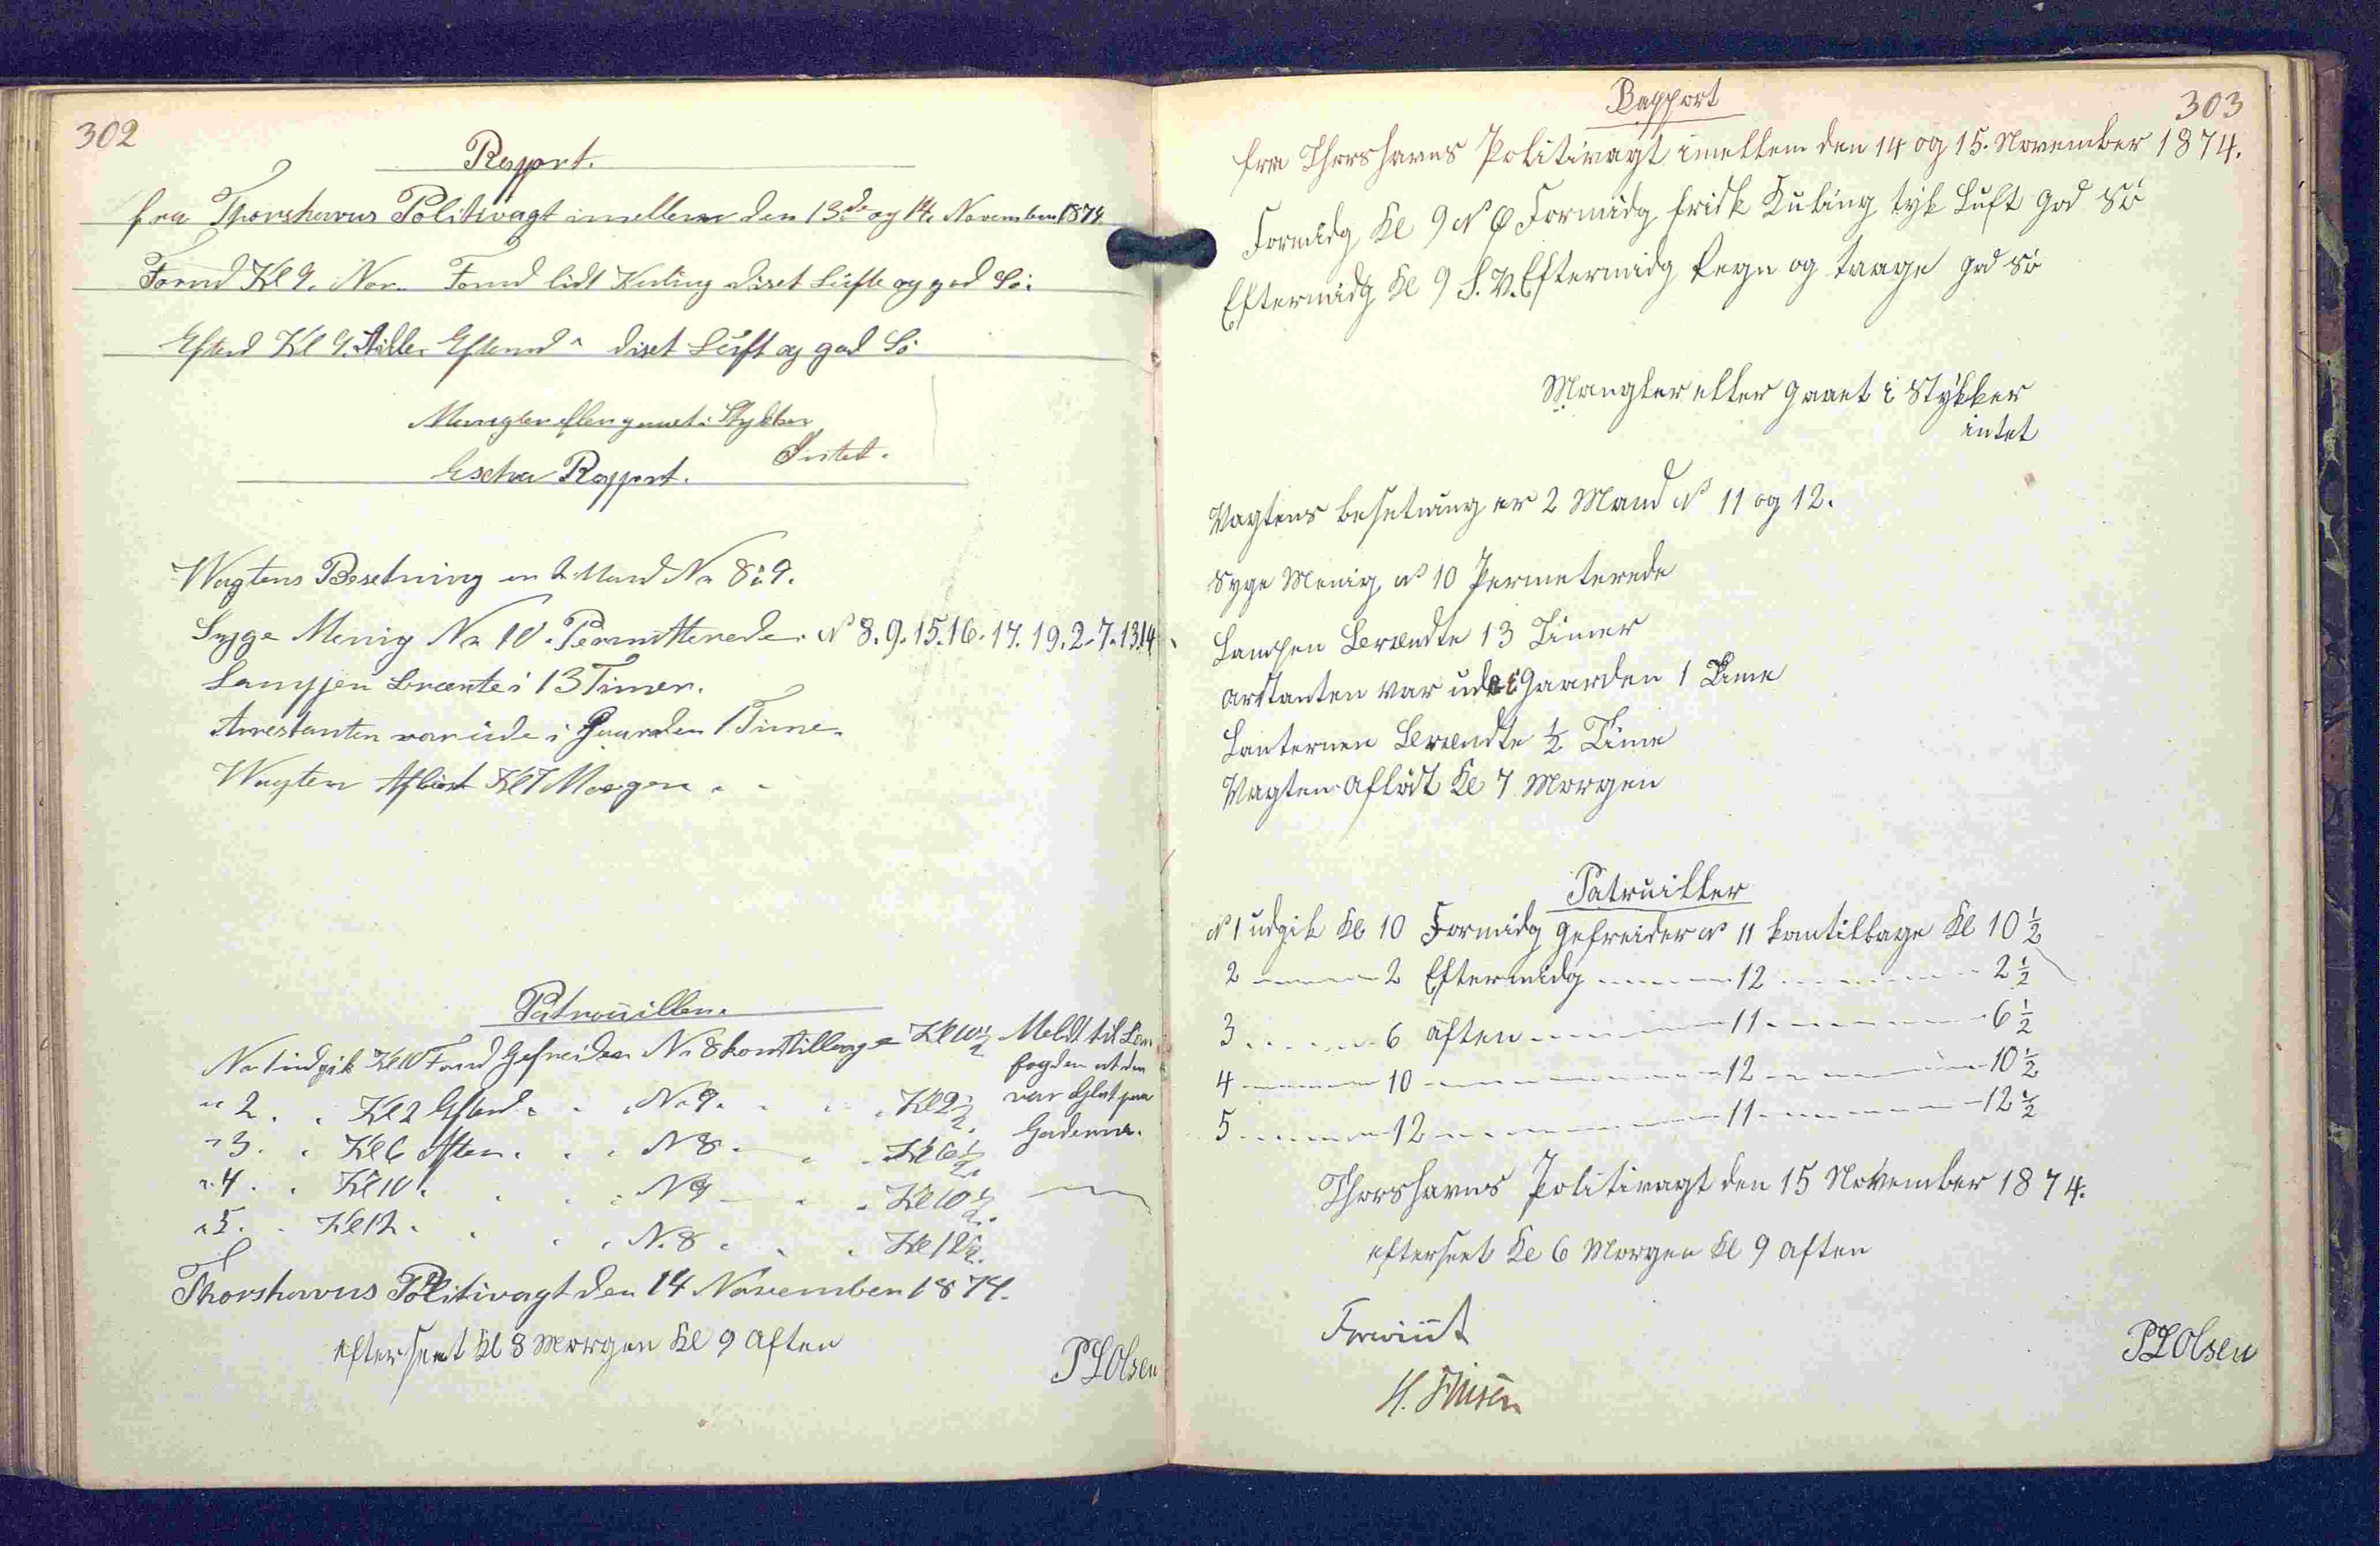 302
Rapport.
fra Thorshavns Politivagt imellem den 13de og 14. November 1874
Formd Kl 9. Nor. Formd lidt Kuling diset Luft og god Sö.
Efterd Kl 9. Stille Eftermd " diset Luft og god Sö
Mangler eller gaaet i Stykker
Intet.
Exstra Rapport.
Wagtens Besetning er 2 Mand No 8 & 9.
Syge Menig No 10. Permitterede. No 8. 9. 15. 16. 17. 19. 2. 7. 13. 14
Lampen brænte i 13 Timer.
Arrestanten var ude i Gaarden 1 Time.
Wagten Aflöst Kl 7 Morgen
Patrouiller.
No 1 udgik Kl 10 Formd Gefreider No 8 kom tillbage Kl 10½ Meldt til Lan
fogden at den
" 2. " Kl 2 Efterd " " No 9. " " Kl 2½ var Glat paa
" 3. " Kl 6 Aften. " " N 8 " " Kl 6½. Gaderne.
" 4. " Kl 10. " " N 9 " " Kl 10½.
" 5. " Kl 12. " " N. 8 " " Kl 12½.
Thorshavns Politivagt den 14 November 1874.
efterseet Kl 8 Morgen Kl 9 Aften
P L Olsen
303
Rapport
fra Thorshavns Politivagt imellem den 14 og 15. November 1874.
Formidg Kl 9 N Ø Formidg frisk Kuling tyk Luft god Sö
Eftermidg Kl 9 S. V. Eftermidg Regn og taage god Sö
Mangler eller gaaet i Stykker
intet
Vagtens besetning er 2 Mand No 11 og 12.
Syge Menig No 10 Permeterede
Lampen Brændte 13 Timer
arstanten var ude i Gaarden 1 Time
Lanternen Brændte ½ Time
Vagten Aflöst Kl 7 Morgen
Patruiller
No 1 udgik Kl 10 Formidg Gefreider No 11 komtilbage Kl 10½
2 " 2 Eftermidg " 12 " 2½
3 " 6 aften " 11 " 6½
4 " 10 " 12 " 10½
5 " 12 " 11 " 12½
Thorshavns Politivagt den 15 November 1874.
efterseet Kl 6 Morgen Kl 9 aften
P L Olsen